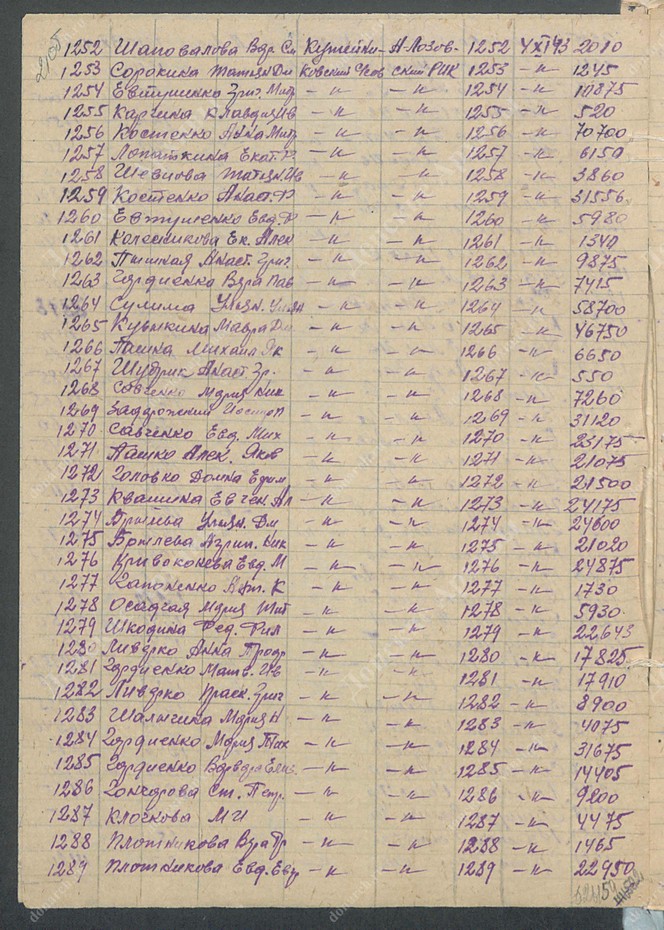 1252 Шаповалова Вар. Сп Кутейни- А-Лозов- 1252 4/XI 43 2010
1253 Сорокина Татьян Дм ковский Чсов ский РИК 1253 -н- 1245
1254 Евтушенко Григ. Митр -н- -н- 1254 -н- 10875
1255 Карчина Клавдия Ив -н- -н- 1255 -н- 520
1256 Костенко Анна Митр -н- -н- 1256 -н- 70700
1257 Лопаткина Екат. Р. -н- -н- 1257 -н- 6150
1258 Шевцова Татьян Ив -н- -н- 1258 -н- 3860
1259 Костенко Анаст. Ф -н- -н- 1259 -н- 31556
1260 Евтушенко Евд. Ф -н- -н- 1260 -н- 5980
1261 Колесникова Ек. Алек -н- -н- 1261 -н- 1340
1262 Пишная Анаст. Григ. -н- -н- 1262 -н- 9875
1263 Гордиенко Вера Пав -н- -н- 1263 -н- 7415
1264 Сулима Ульян. Ульян -н- -н- 1264 -н- 58700
1265 Кувикина Мавра Дм -н- -н- 1265 -н- 46750
1266 Пашка Михаил Як -н- -н- 1266 -н- 6650
1267 Шубрик Анаст. Гр. -н- -н- 1267 -н- 550
1268 Савченко Мария Ник -н- -н- 1268 -н- 7260
1269 Задорожний Иосиф П -н- -н- 1269 -н- 31120
1270 Савченко Евд. Мих -н- -н- 1270 -н- 23175
1271 Пашко Алек. Яков -н- -н- 1271 -н- 21075
1272 Головко Домна Ефим -н- -н- 1272 -н- 21500
1273 Квашина Евген. Ал -н- -н- 1273 -н- 24175
1274 Ульян. Дм -н- -н- 1274 -н- 24600
1275 Агрип. Ник -н- -н- 1275 -н- 21020
1276 Кривоконева Евд. М -н- -н- 1276 -н- 24875
1277 Гапоненко К -н- -н- 1277 -н- 1730
1278 Осадчая Мария Тит -н- -н- 1278 -н- 5930
1279 Шкодина Фед. Фил -н- -н- 1279 -н- 22643
1280 Ливерко Анна Профр -н- -н- 1280 -н- 17825
1281 Гордиенко Матв. Ив -н- -н- 1281 -н- 17910
1282 Ливерко Праск. Григ -н- -н- 1282 -н- 8900
1283 Шалыгина Мария Н -н- -н- 1283 -н- 4075
1284 Гордиенко Мария Мак -н- -н- 1284 -н- 31675
1285 Гордиенко Варвара Елиз. -н- -н- 1285 -н- 14405
1286 Гонкорова Ст. Петр. -н- -н- 1286 -н- 9200
1287 Клочкова М И -н- -н- 1287 -н- 4475
1288 Плотникова Вера Пр -н- -н- 1288 -н- 1465
1289 Плотникова Евд. Евд -н- -н- 1289 -н- 22950